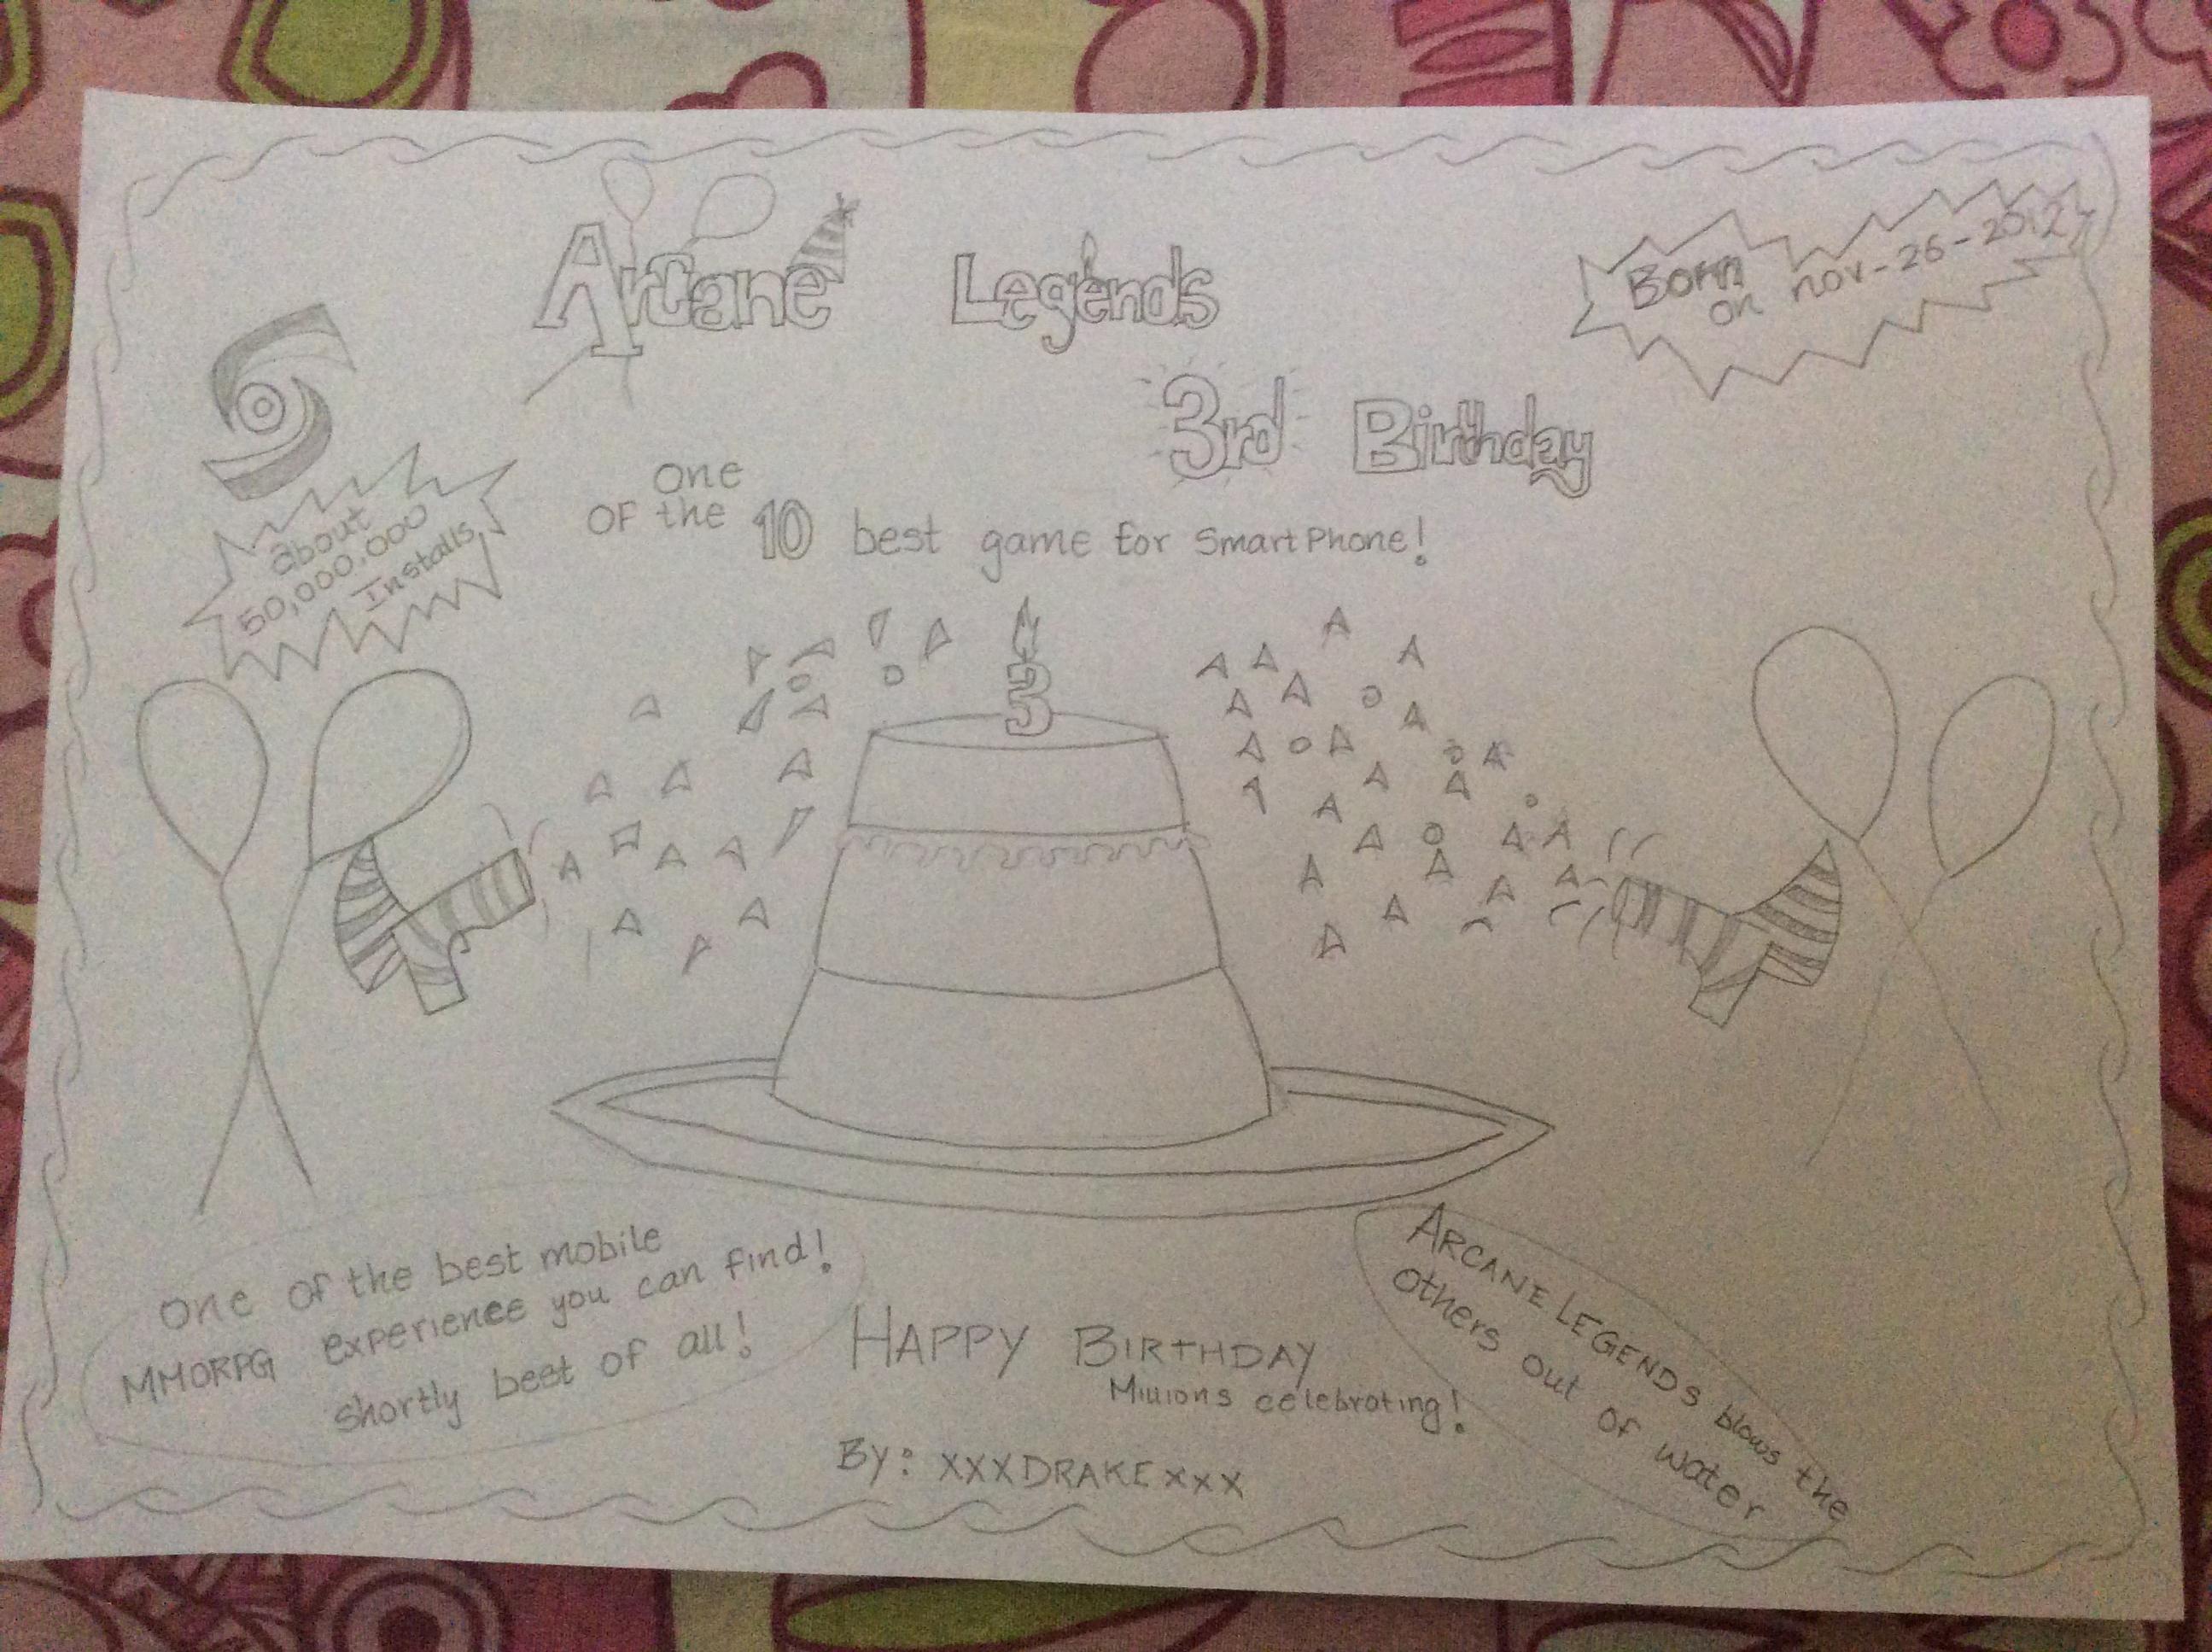 Arcane Legends
3rd Birthday
Born
on nov-26-2012
about
50,000.000
Installs
one
OF the 10 best game for SmartPhone!
3
One of the best mobile
MMORPG experience you can find!
shortly best of all!
HAPPY BIRTHDAY
Millions celebrating!
By: XXXDRAKExxx
ARCANE LEGENDS blows the
others out of water